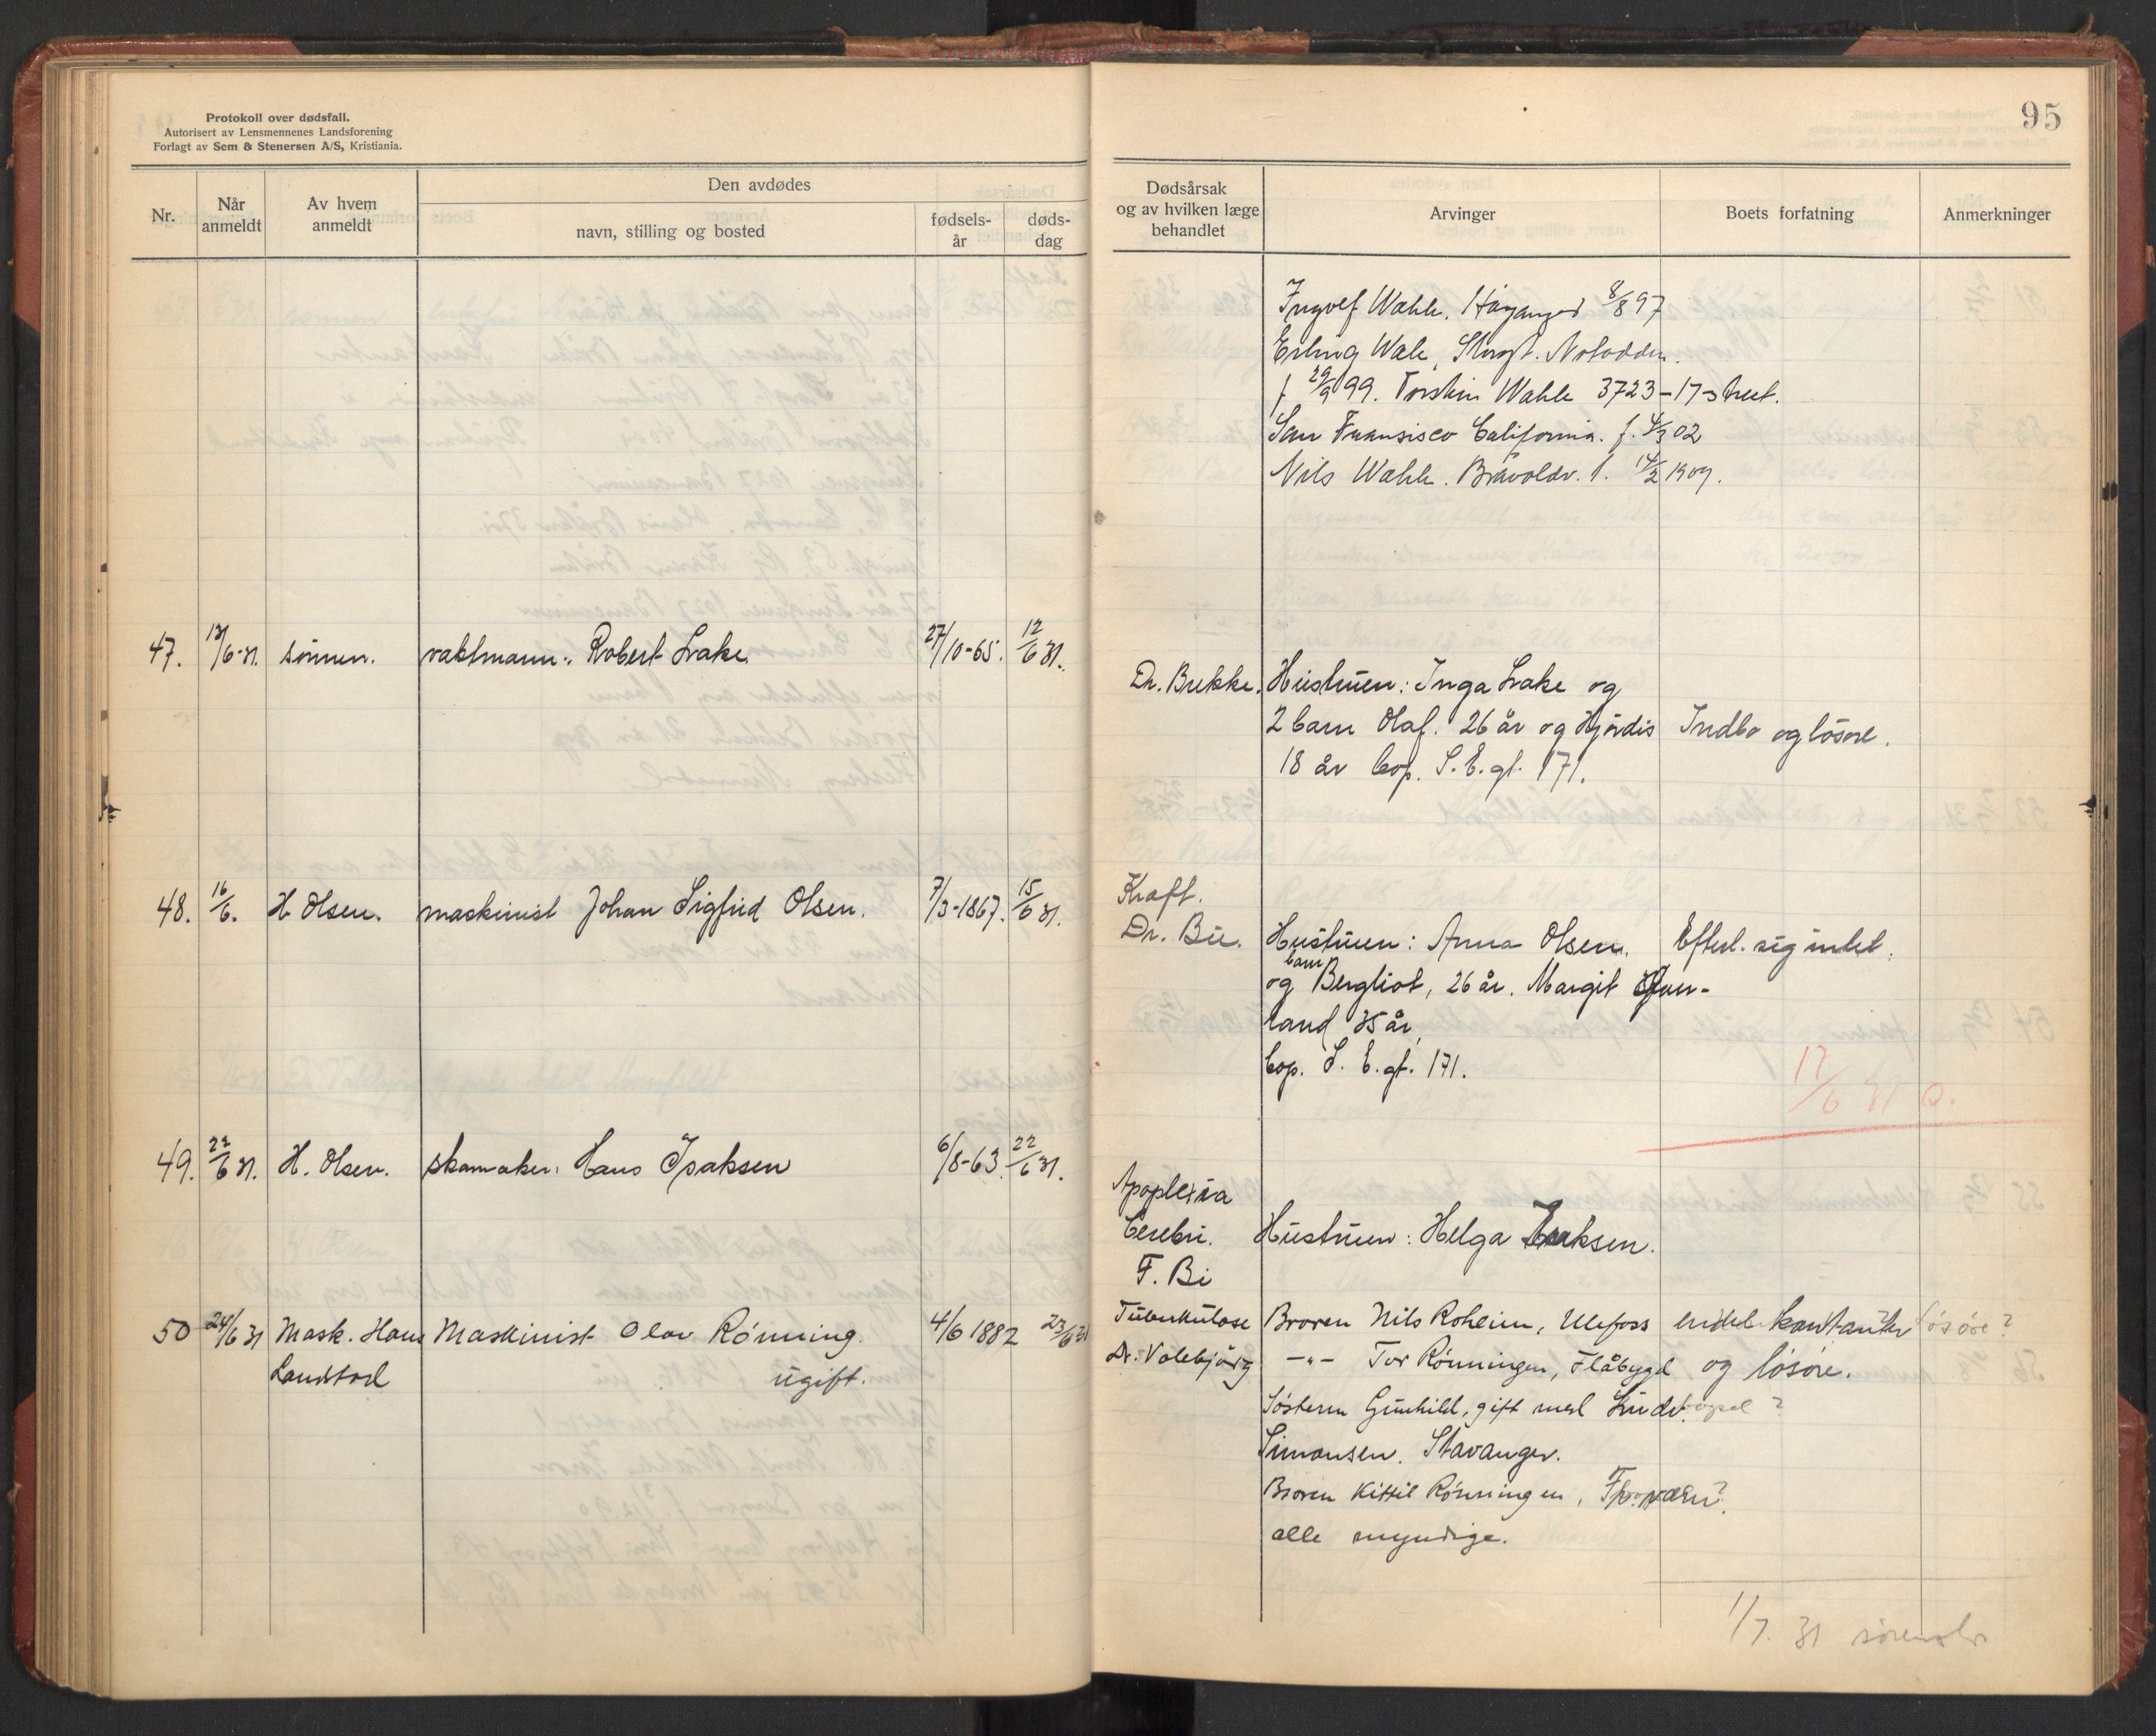 Protokoll over dødsfall.
Autorisert av Lensmennenes Landsforening
Forlagt av Sem & Stenersen A/S, Kristiania.
Nr.
Når anmeldt
Av hvem anmeldt
Den avdødes
navn, stilling og bosted
fødsels-år
døds-dag
47. 13/6-31. sønnen. vaktmann: Robert Lake. 27/10-65. 12/6 31.
48. 16/6. H. Olsen. maskinist Johan Sigfrid Olsen. 7/3-1867. 15/6 31.
49. 22/6 31. H. Olsen. skomaker: Hans Isaksen 6/8-63. 22/6 31.
50 24/6 31 Mask. Hans Maskinist Olav Rönning. 4/6 1882 23/6 31
Landstad ugift.
95
Dødsårsak
og av hvilken læge
behandlet
Arvinger
Boets forfatning
Anmerkninger
Ingolf Wahle. Höyanger 8/8 97
Erling Wale, Notodden.
f 29/9 99. Torstein Wahle 3723-17 street.
San Fransisco California. f. 4/3 02
Nils Wahle. f. 14/2 1909.
Dr. Brekke. Hustruen: Inga Lake og
2 barn Olaf. 26 år og Hjördis Indbo og lösöre.
18 år Cop. S. E. gt. 171.
Kraft.
Dr. Bie. Hustruen: Anna Olsen. Efterl. sig intet.
og barn Bergliot, 26 år. Margit
land 35 år,
Cop. S. E. gt. 171.
17/6 31 O.
Apoplexia
Cerebri. Hustruen: Helga Isaksen.
F. Bi
Tuberkulose Broren Nils Roheim, Ulefoss endel kontanter lösöre?
Dr. Valebjørg -"- Tor Rönningen, Flåbygd og lösöre.
Søsteren Gunhild, gift med Ludv.
Simonsen. Stavanger.
Broren Kittil Rönningen,
alle myndige.
1/7. 31